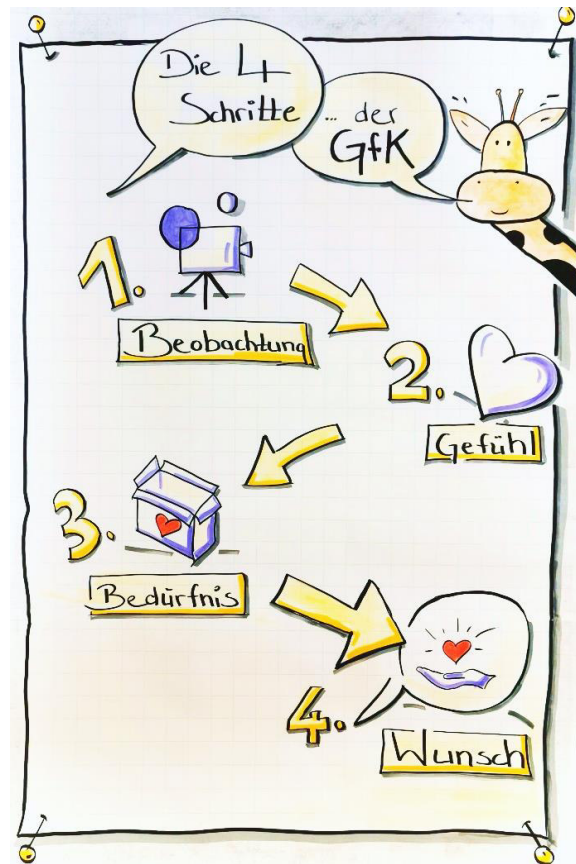 Die 4
Schritte
... der
GfK
1.
Beobachtung
2.
Gefühl
3.
Bedürfnis
4.
Wunsch